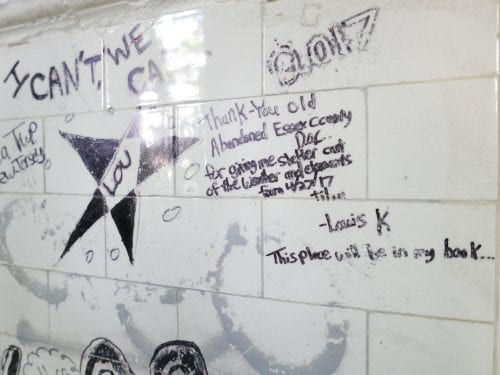 I CAN'T, WE
CA
a Trip
Jersey
LOU
Thank-You old
Abandoned Essex County
for giving me shelter out
of the weather and elements
from 4/27/17
til...
-Louis K
This place will be in my book...